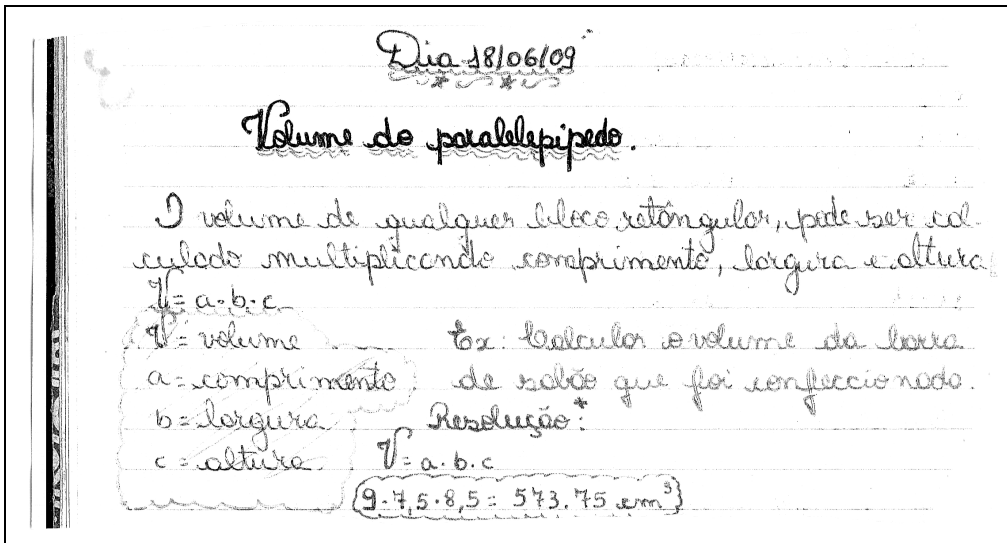 Dia 18/06/09
Volume do paralelepípedo.
O volume de qualquer bloco retângular, pode ser cal-
culado multiplicando comprimento, largura e altura
V= a.b.c
V= volume
a= comprimento
b= largura
c= altura
Ex: Calcular o volume da barra
de sabão que foi confeccionado.
Resolução:
V= a.b.c
9.7,5.8,5= 573.75 cm³